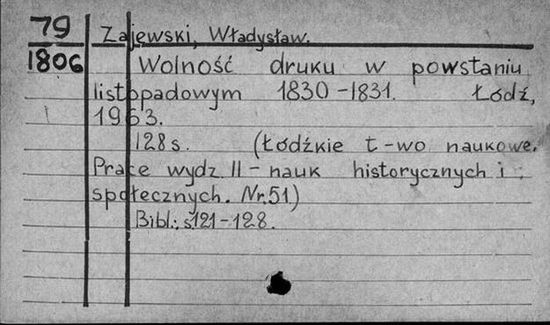 79
1806
Zajewski, Władysław.
Wolność druku w powstaniu
listopadowym 1830-1831. Łódź,
1963.
128 s. (Łódźkie t-wo naukowe.
Prace wydz II - nauk historycznych i
społecznych. Nr.51)
Bibl.: s121-128.